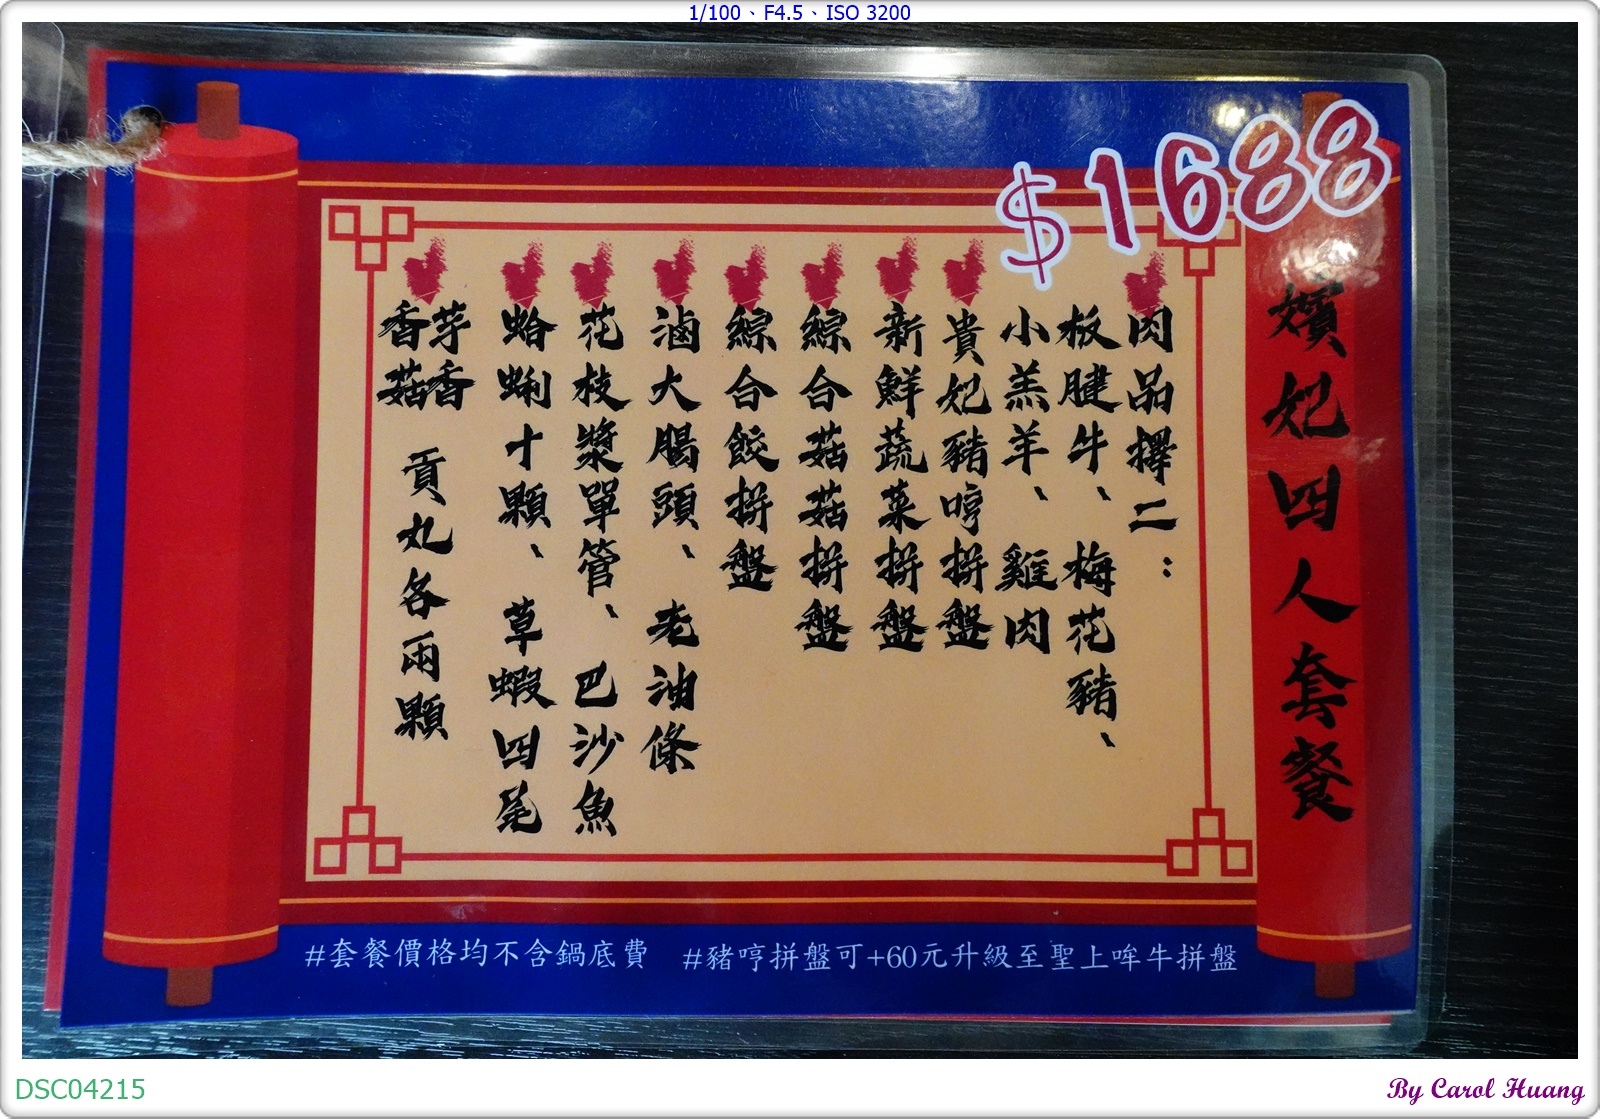 1/100、F4.5、ISO 3200
$1688
嬪妃四人套餐
肉品擇二：
板腱牛、梅花豬、
小羔羊、雞肉
貴妃豬哼拼盤
新鮮蔬菜拼盤
綜合菇菇拼盤
綜合餃拼盤
滷大腸頭、老油條
花枝漿單管、巴沙魚
蛤蜊十顆、草蝦四尾
芋香
香菇
貢丸各兩顆
#套餐價格均不含鍋底費 #豬哼拼盤可+60元升級至聖上哞牛拼盤
DSC04215
By Carol Huang